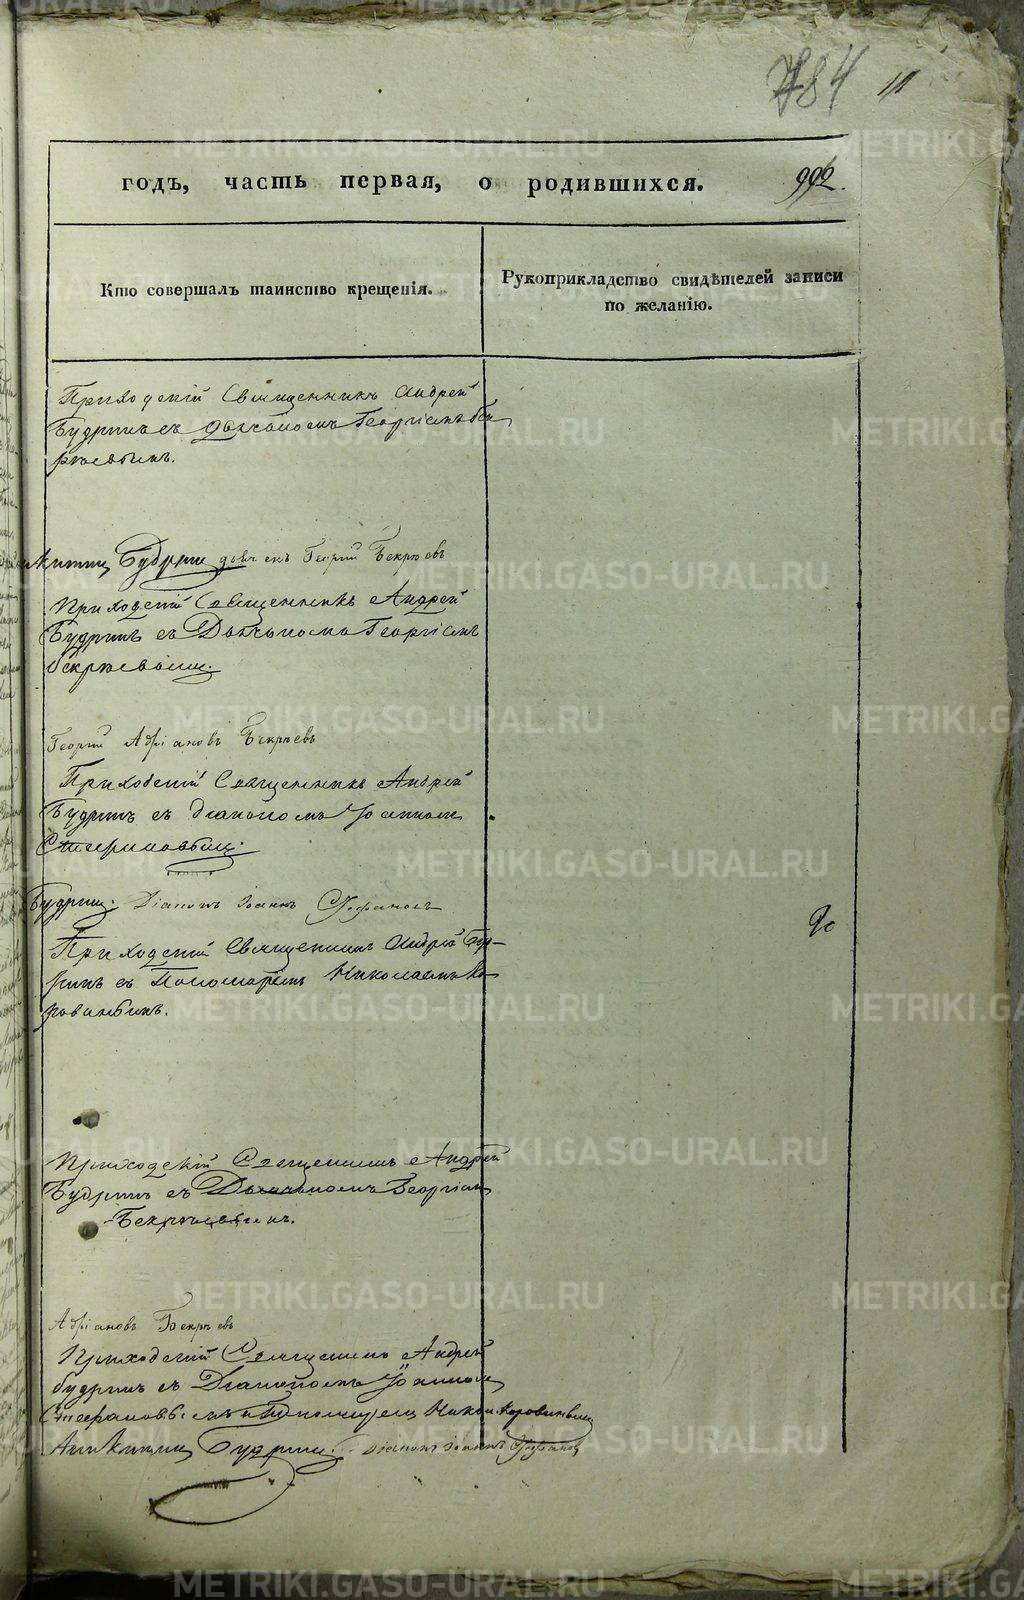 784
годъ, часть первая, о родившихся.
Кто совершалъ таинство крещенія.
Рукоприкладство свидѣтелей записи
по желанію.
Приходскій Священникъ Андрей
Будринъ съ дьячкомъ Георгіемъ Бек
рѣевымъ.
Будринъ дьячекъ Георгій Бекрѣевъ
Приходскій Священникъ Андрей
Будринъ съ Дьячкомъ Георгіемъ
Бекрѣевымъ.
Георгій Адріановъ Бекрѣевъ
Приходскій Священникъ Андрей
Будринъ съ Діакономъ Іоанномъ
Стефановымъ.
Будринъ. Діаконъ Іоаннъ Стефановъ
Приходскій Священникъ Андрей Буд-
ринъ съ Пономаремъ Николаемъ Ко
ровинымъ.
Приходскій Священникъ Андрей
Будринъ съ Дьячкомъ Георгіемъ
Бекрѣевымъ.
Адріановъ Бекрѣевъ
Приходскій Священникъ Андрей
Будринъ съ Діакономъ Іоанномъ
Стефановымъ и Пономаремъ Никол Коровинымъ
Будринъ. Діаконъ Іоаннъ Стефановъ
METRIKI.GASO-URAL.RU